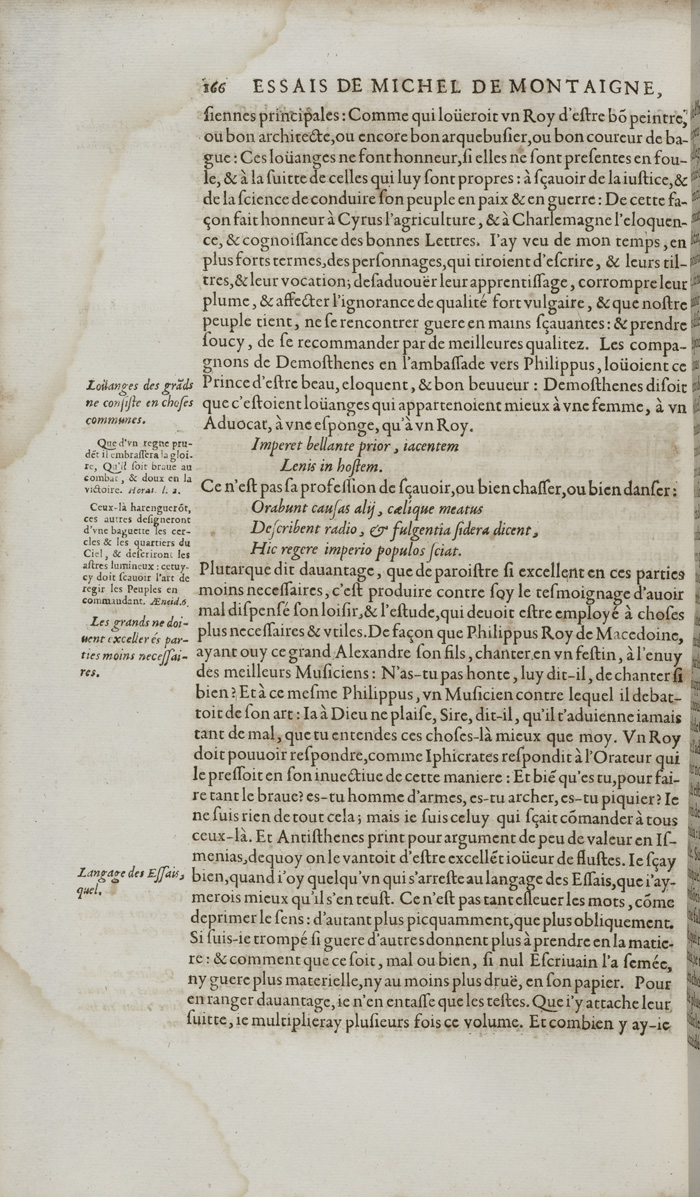 166 ESSAIS DE MICHEL DE MONTAIGNE,
ſiennes principales : Comme qui loüeroit vn Roy d'eſtre bõ peintre,
ou bon architecte, ou encore bon arquebuſier, ou bon coureur de ba-
gue : Ces loüanges ne font honneur, ſi elles ne ſont preſentes en fou-
le, & à la ſuitte de celles qui luy ſont propres : à ſçauoir de la iuſtice, &
de la ſcience de conduire ſon peuple en paix & en guerre : De cette fa-
çon fait honneur à Cyrus l'agriculture, & à Charlemagne l'eloquen-
ce, & cognoiſſance des bonnes Lettres. I'ay veu de mon temps, en
plus forts termes, des perſonnages, qui tiroient d'eſcrire, & leurs til-
tres, & leur vocation ; deſaduoüer leur apprentiſſage, corrompre leur
plume, & affecter l'ignorance de qualité fort vulgaire, & que noſtre
peuple tient, ne ſe rencontrer guere en mains ſçauantes : & prendre
ſoucy, de ſe recommander par de meilleures qualitez. Les compa-
gnons de Demoſthenes en l'ambaſſade vers Philippus, loüoient ce
Prince d'eſtre beau, eloquent, & bon beuueur : Demoſthenes diſoit
que c'eſtoient loüanges qui appartenoient mieux à vne femme, à vn
Aduocat, à vne eſponge, qu'à vn Roy.
Imperet bellante prior, iacentem
Lenis in hoſtem.
Ce n'eſt pas ſa profeſſion de ſçauoir, ou bien chaſſer, ou bien danſer :
Orabunt cauſas alij, cælique meatus
Deſcribent radio, & fulgentia ſidera dicent,
Hic regere imperio populos ſciat.
Plutarque dit dauantage, que de paroiſtre ſi excellent en ces parties
moins neceſſaires, c'eſt produire contre ſoy le teſmoignage d'auoir
mal diſpenſé ſon loiſir, & l'eſtude, qui deuoit eſtre employé à choſes
plus neceſſaires & vtiles. De façon que Philippus Roy de Macedoine,
ayant ouy ce grand Alexandre ſon fils, chanter en vn feſtin, à l'enuy
des meilleurs Muſiciens : N'as-tu pas honte, luy dit-il, de chanter ſi
bien ? Et à ce meſme Philippus, vn Muſicien contre lequel il debat-
toit de ſon art : Ia à Dieu ne plaiſe, Sire, dit-il, qu'il t'aduienne iamais
tant de mal, que tu entendes ces choſes-là mieux que moy. Vn Roy
doit pouuoir reſpondre, comme Iphicrates reſpondit à l'Orateur qui
le preſſoit en ſon inuectiue de cette maniere : Et biẽ qu'es tu, pour fai-
re tant le braue ? es-tu homme d'armes, es-tu archer, es-tu piquier ? Ie
ne ſuis rien de tout cela ; mais ie ſuis celuy qui ſçait cõmander à tous
ceux-là. Et Antiſthenes print pour argument de peu de valeur en Iſ-
menias, dequoy on le vantoit d'eſtre excellẽt ioüeur de fluſtes. Ie ſçay
bien, quand i'oy quelqu'vn qui s'arreſte au langage des Eſſais, que i'ay-
merois mieux qu'il s'en teuſt. Ce n'eſt pas tant eſleuer les mots, cõme
deprimer le ſens : d'autant plus picquamment, que plus obliquement.
Si ſuis-ie trompé ſi guere d'autres donnent plus à prendre en la matie-
re : & comment que ce ſoit, mal ou bien, ſi nul Eſcriuain l'a ſemée,
ny guere plus materielle, ny au moins plus druë, en ſon papier. Pour
en ranger dauantage, ie n'en entaſſe que les teſtes. Que i'y attache leur
ſuitte, ie multiplieray pluſieurs fois ce volume. Et combien y ay-ie
Loüanges des grãds
ne conſiſte en choſes
communes.
Que d'vn regne pru-
dẽt il embraſſera la gloi-
re, Qu'il ſoit braue au
combat, & doux en la
victoire. Horat. l. 2.
Ceux-là harenguerõt,
ces autres deſigneront
d'vne baguette les cer-
cles & les quartiers du
Ciel, & deſcriront les
aſtres lumineux : cetuy-
cy doit ſcauoir l'art de
regir les Peuples en
commandant. Æneid. 6.
Les grands ne doi-
uent exceller és par-
ties moins neceſſai-
res.
Langage des Eſſais,
quel.